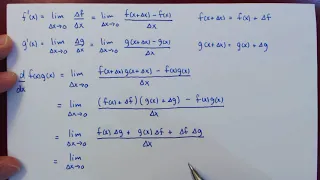 f'(x) = lim Δx→0 Δf/Δx = lim Δx→0 f(x+Δx)-f(x)/Δx f(x+Δx) = f(x) + Δf
g'(x) = lim Δx→0 Δg/Δx = lim Δx→0 g(x+Δx)-g(x)/Δx g(x+Δx) = g(x) + Δg
d/dx f(x)g(x) = lim Δx→0 f(x+Δx)g(x+Δx) - f(x)g(x)/Δx
= lim Δx→0 (f(x)+Δf)(g(x)+Δg) - f(x)g(x)/Δx
= lim Δx→0 f(x)Δg + g(x)Δf + Δf Δg/Δx
= lim Δx→0